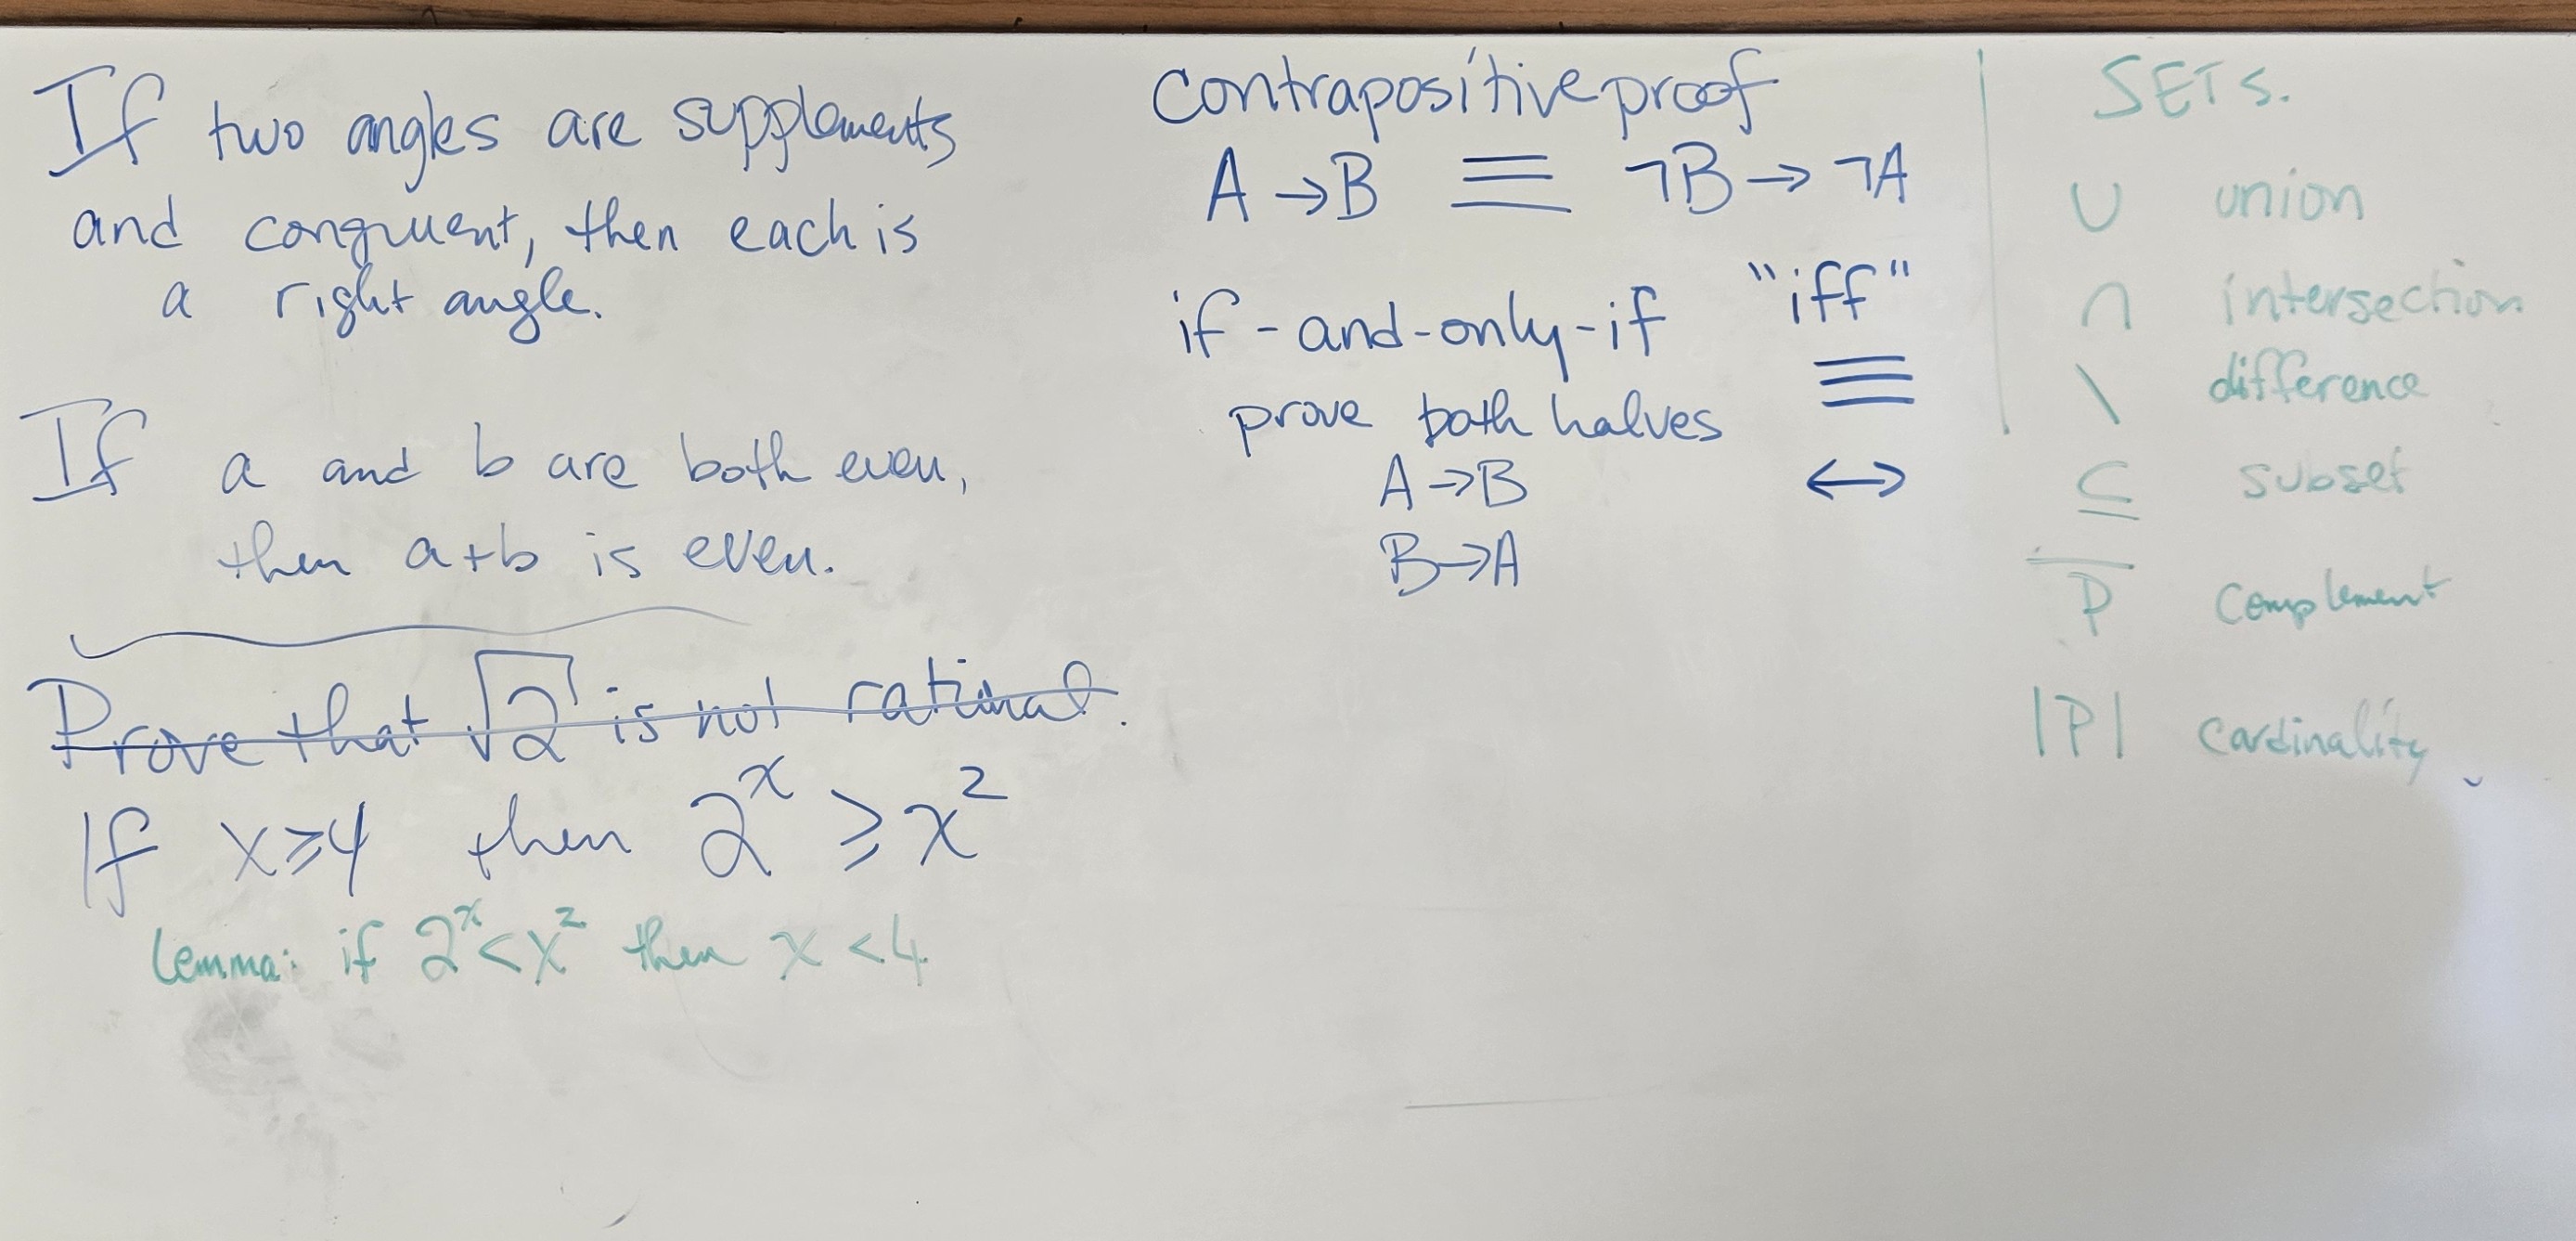 If two angles are supplements
and congruent, then each is
a right angle.
If a and b are both even,
then a+b is even.
Prove that √2 is not rational.
If x⩾4 then 2^x ⩾ x^2
Lemma: if 2^x < x^2 then x < 4
Contrapositive proof
A → B ≡ ¬B → ¬A
if-and-only-if "iff"
≡
prove both halves
A → B ↔
B → A
SETS.
∪ union
∩ intersection
\ difference
⊆ subset
P̅ complement
|P| cardinality